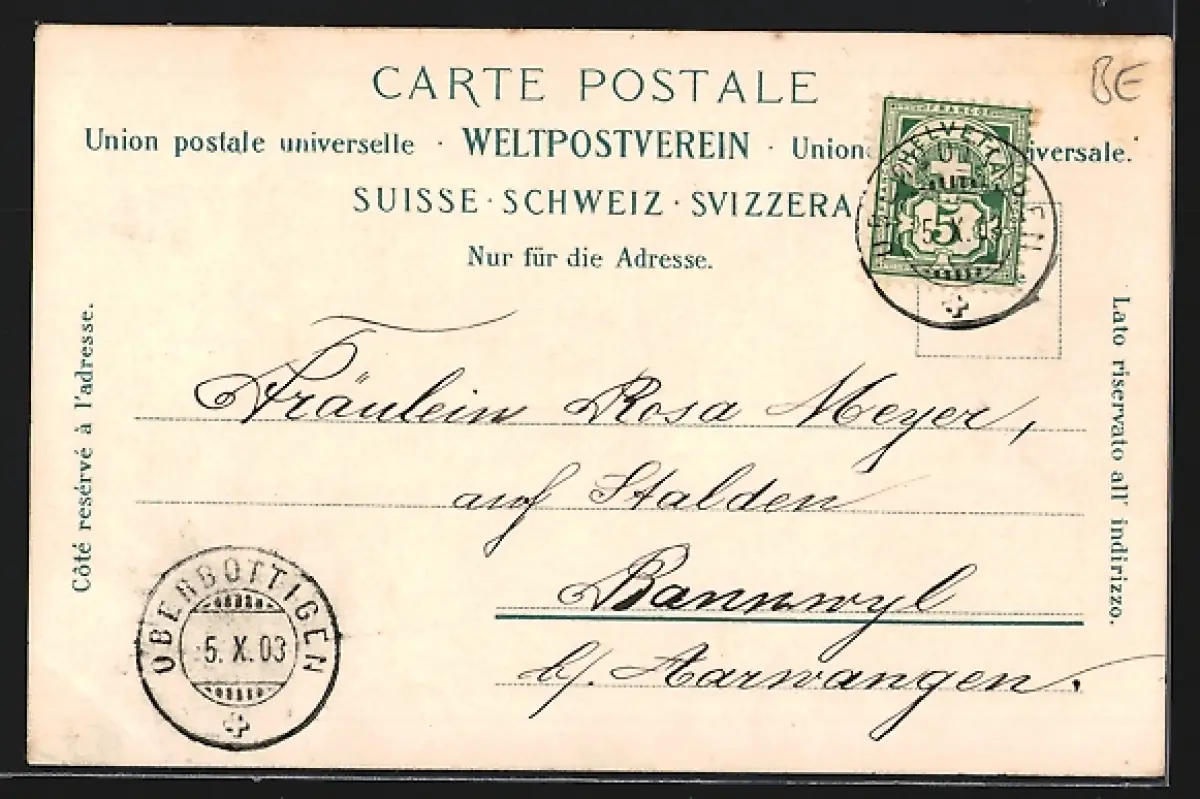 BE
CARTE POSTALE
Union postale universelle · WELTPOSTVEREIN · Union iversale.
SUISSE · SCHWEIZ · SVIZZERA
Nur für die Adresse.
FRANCO
HELVETIA
5
5. X. 03
Côté resérvé à l'adresse.
Lato riservato all' indirizzo.
Fräulein Rosa Meyer,
auf Stalden
Bannwyl
b/. Aarwangen.
OBERBOTTIGEN
5. X. 03